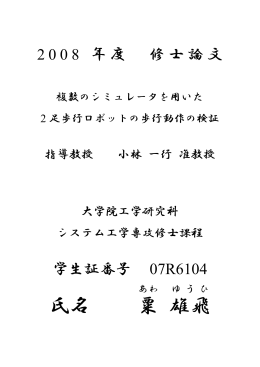 2008 年度 修士論文
複数のシミュレータを用いた
2足歩行ロボットの歩行動作の検証
指導教授 小林 一行 准教授
大学院工学研究科
システム工学専攻修士課程
学生証番号 07R6104
あわ ゆうひ
氏名 粟 雄飛